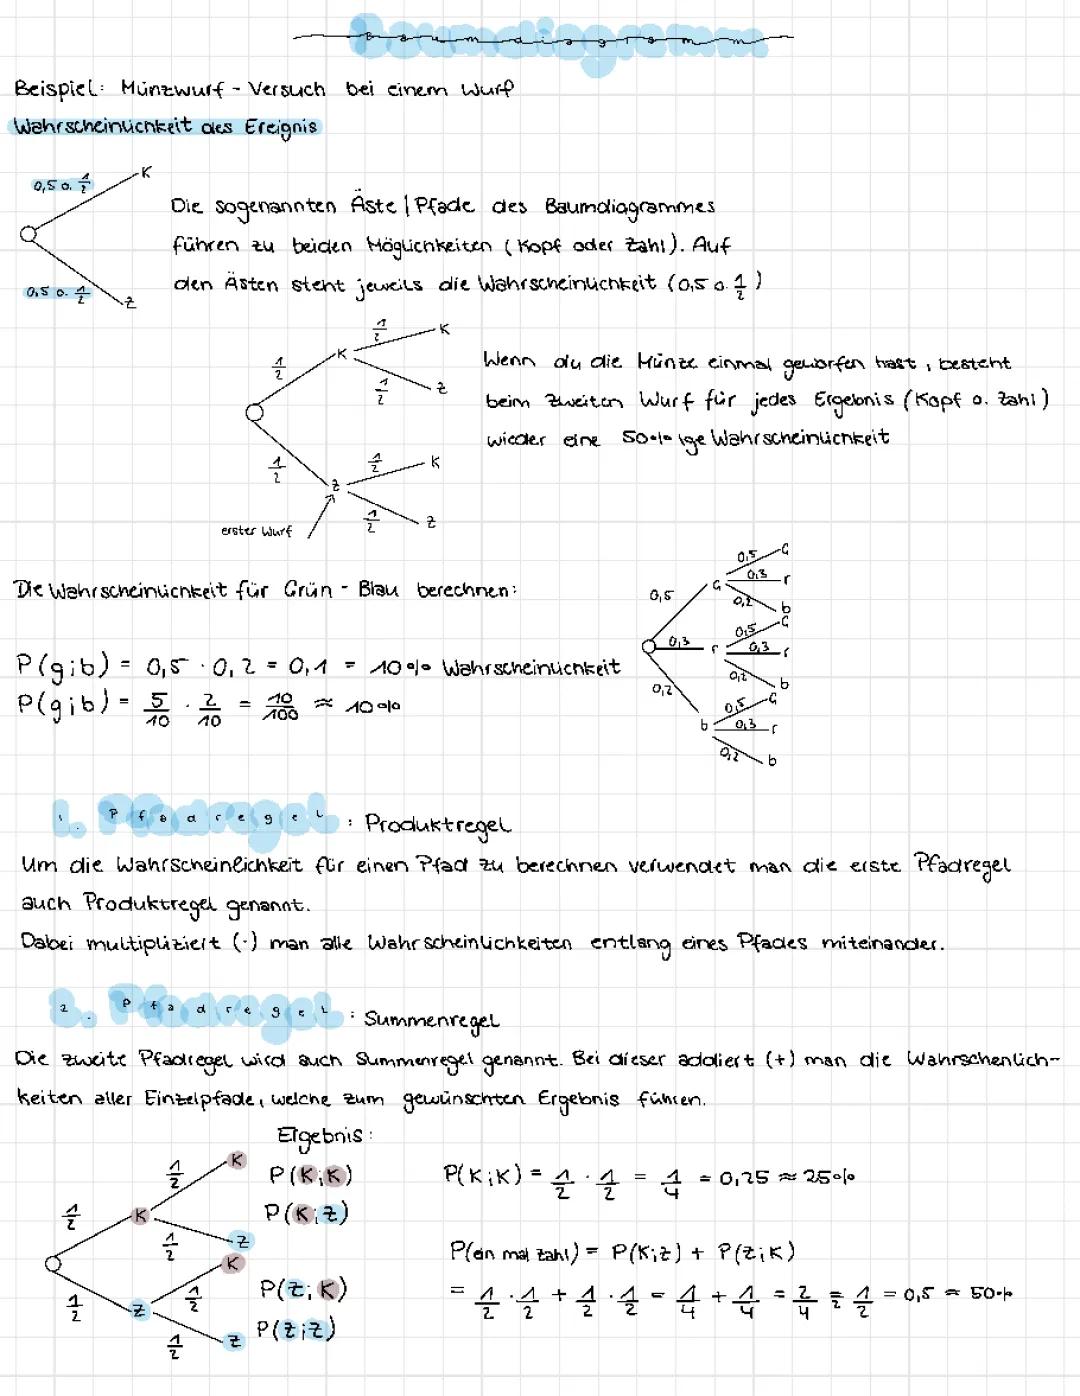 Baumdiagramm
Beispiel: Münzwurf - Versuch bei einem Wurf
Wahrscheinlichkeit des Ereignis
0,5 o. 1/2
K
0,5 o. 1/2
Z
Die sogenannten Äste | Pfade des Baumdiagrammes
führen zu beiden Möglichkeiten (Kopf oder Zahl). Auf
den Ästen steht jeweils die Wahrscheinlichkeit (0,5 o. 1/2)
1/2 K 1/2 K
1/2 Z
1/2 Z 1/2 K
1/2 Z
erster Wurf
Wenn du die Münze einmal geworfen hast, besteht
beim zweiten Wurf für jedes Ergebnis (Kopf o. Zahl)
wieder eine 50% ige Wahrscheinlichkeit
Die Wahrscheinlichkeit für Grün - Blau berechnen:
P(g;b) = 0,5 · 0,2 = 0,1 = 10% Wahrscheinlichkeit
P(g;b) = 5/10 · 2/10 = 10/100 ≈ 10%
0,5 G 0,5 G
0,3 r
0,2 b
0,3 r 0,5 G
0,3 r
0,2 b
0,2 b 0,5 G
0,3 r
0,2 b
1. Pfadregel : Produktregel
Um die Wahrscheinlichkeit für einen Pfad zu berechnen verwendet man die erste Pfadregel
auch Produktregel genannt.
Dabei multipliziert (·) man alle Wahrscheinlichkeiten entlang eines Pfades miteinander.
2. Pfadregel : Summenregel
Die zweite Pfadregel wird auch Summenregel genannt. Bei dieser addiert (+) man die Wahrschenlich-
keiten aller Einzelpfade, welche zum gewünschten Ergebnis führen.
Ergebnis:
1/2 K 1/2 K P(K;K)
1/2 Z P(K;Z)
1/2 Z 1/2 K P(Z;K)
1/2 Z P(Z;Z)
P(K;K) = 1/2 · 1/2 = 1/4 = 0,25 ≈ 25%
P(ein mal Zahl) = P(K;Z) + P(Z;K)
= 1/2 · 1/2 + 1/2 · 1/2 = 1/4 + 1/4 = 2/4 = 1/2 = 0,5 ≈ 50%